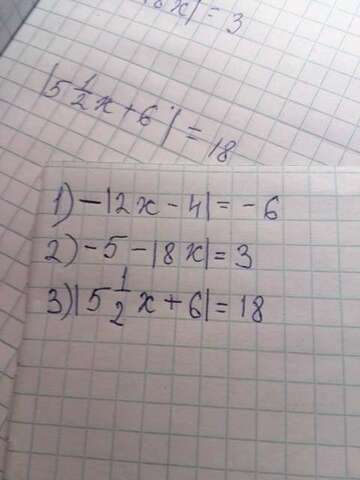 8x| = 3
|5 1/2 x + 6| = 18
1) -|2x - 4| = -6
2) -5 - |8x| = 3
3) |5 1/2 x + 6| = 18